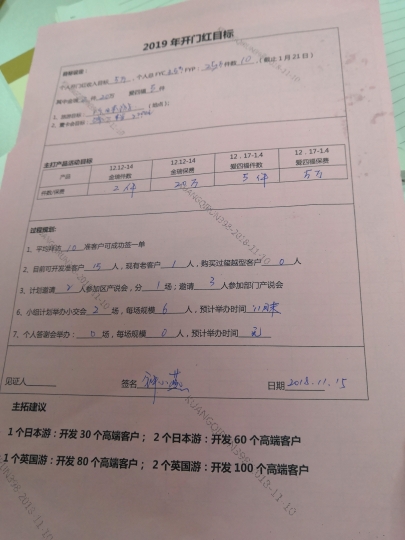 2019年开门红目标
目标设定：
个人开门红收入目标 5万，个人总FYC 6.5万 FYP： 25万 件数 10（截止1月21日）
主打产品活动目标
产品 12.12-14 金瑞件数 12.12-14 金瑞保费 12.17-1.4 爱四福件数 12.17-1.4 爱四福保费
件数/保费 2件 20万 5件 5万
过程规划：
1、平均拜访 10 准客户可成功签一单
2、目前可开发准客户 15 人，现有老客户 1 人，购买过福越型客户 0 人
3、计划邀请 2 人参加区产说会，分 1 场；邀请 3 人参加部门产说会
6、小组计划举办小交会 2 场，每场规模 6 人，预计举办时间
7、个人答谢会举办： 0 场，每场规模 0 人，预计举办时间 无
见证人 签名 日期 2018.11.15
主拓建议
1个日本游：开发30个高端客户； 2个日本游：开发60个高端客户
1个英国游：开发80个高端客户； 2个英国游：开发100个高端客户